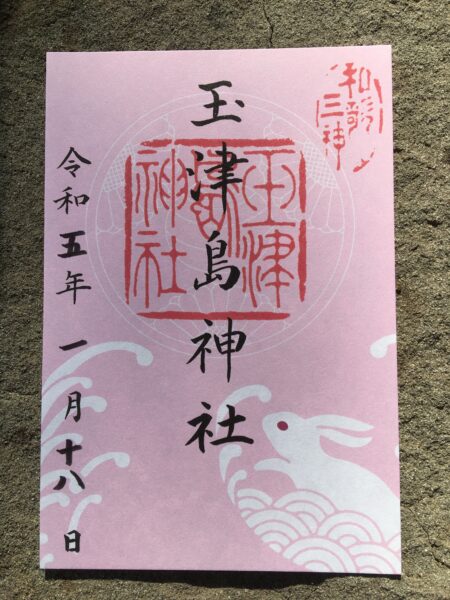 和歌
三神
玉津島神社
玉津
神社
令和五年一月十八日